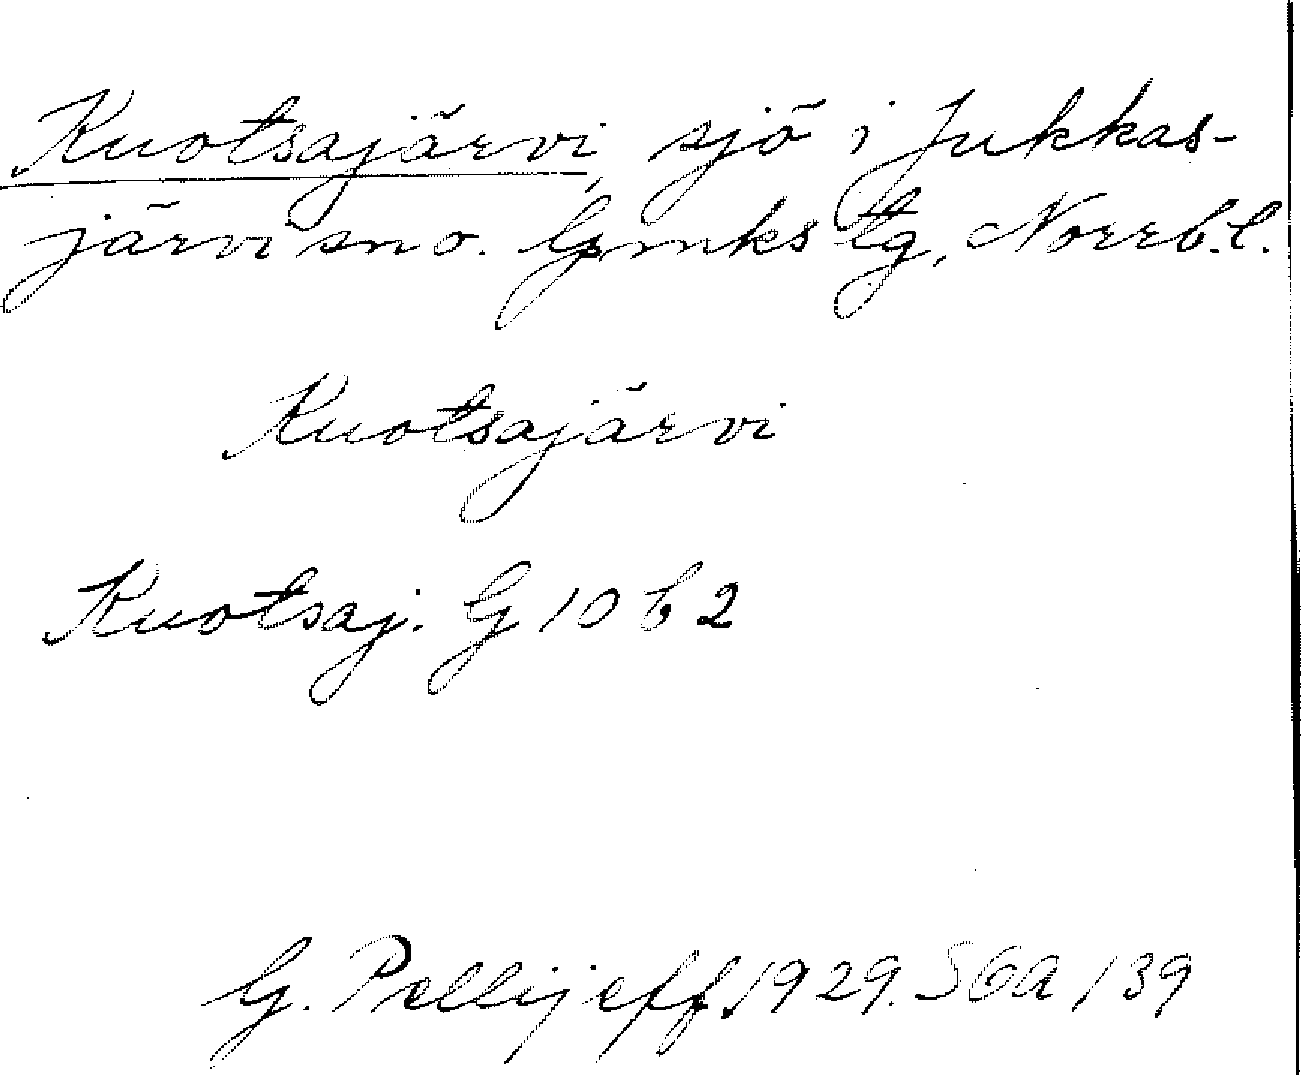 Kuotsajärvi, sjö i Jukkas-
järvi sn o. Gmks tg, Norrb.l.
Kuotsajärvi
Kuotsaj. G 10 b 2
G. Pellijeff, 1929. SGA 139